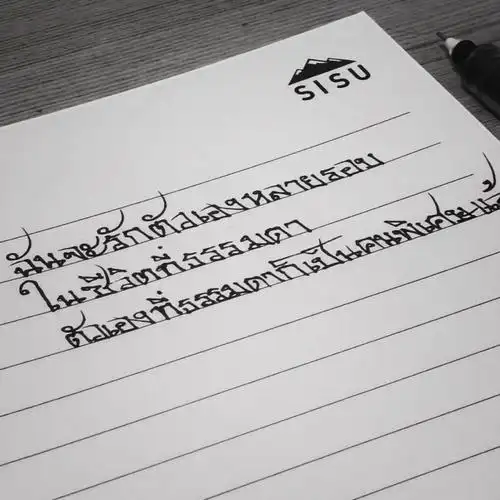 SISU
ฉันจะรักตัวเองหลายรอบ
ในชีวิตที่ธรรมดา
ตัวเองที่ธรรมดาก็เป็นคนพิเศษ